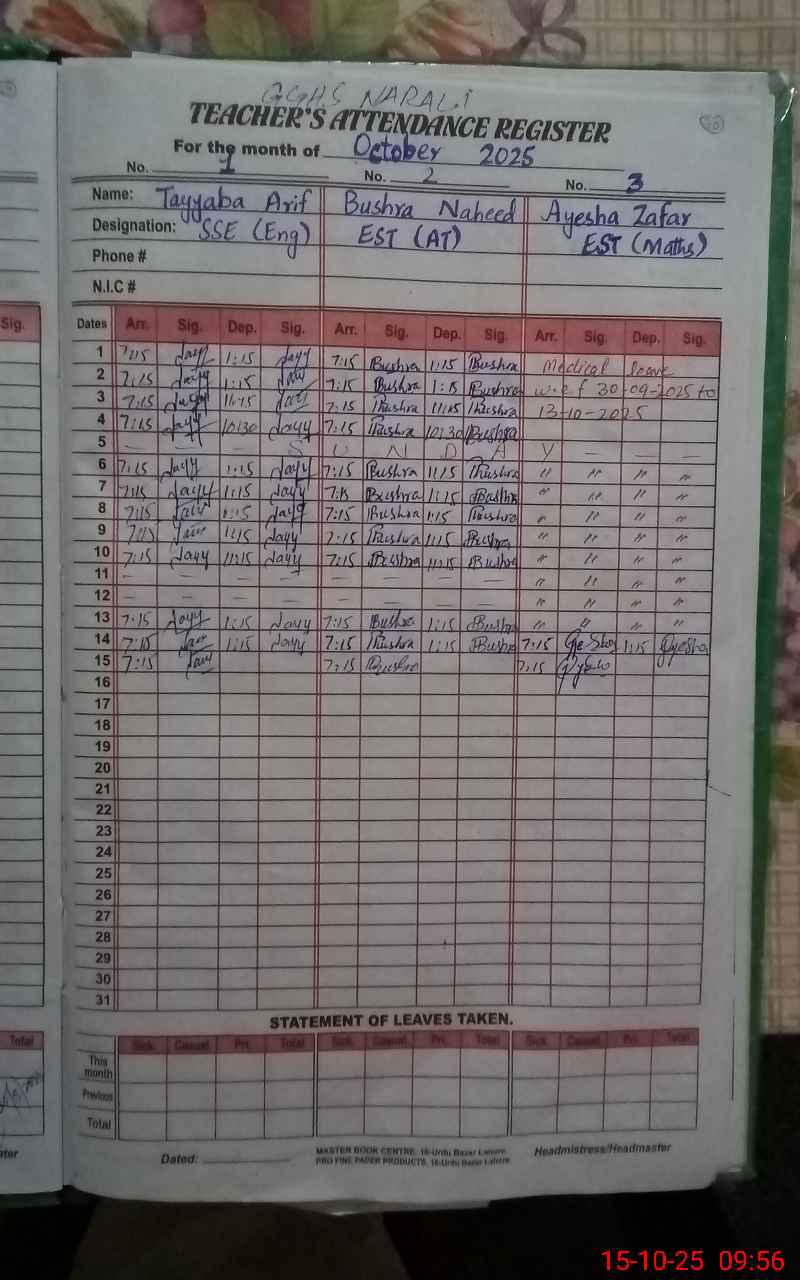 GGHS NARALI
TEACHER'S ATTENDANCE REGISTER
For the month of October 2025
No. 1 No. 2 No. 3
Name: Tayyaba Arif Bushra Naheed Ayesha Zafar
Designation: SSE (Eng) EST (AT) EST (Maths)
Phone #
N.I.C #
Sig. Dates Arr. Sig. Dep. Sig. Arr. Sig. Dep. Sig. Arr. Sig. Dep. Sig.
1 7:15 Tayy 1:15 Tayy 7:15 Bushra 1:15 Bushra Medical leave
2 7:15 Tayy 1:15 Tayy 7:15 Bushra 1:15 Bushra w.e.f 30-09-2025 to
3 7:15 Tayy 11:15 Tayy 7:15 Bushra 11:15 Bushra 13-10-2025
4 7:15 Tayy 10:30 Tayy 7:15 Bushra 10:30 Bushra
5 — — — S U N D A Y — — —
6 7:15 Tayy 1:15 Tayy 7:15 Bushra 11:15 Bushra " " " "
7 7:15 Tayy 1:15 Tayy 7:15 Bushra 11:15 Bushra " " " "
8 7:15 Tayy 1:15 Tayy 7:15 Bushra 1:15 Bushra " " " "
9 7:15 Tayy 1:15 Tayy 7:15 Bushra 11:15 Bushra " " " "
10 7:15 Tayy 11:15 Tayy 7:15 Bushra 11:15 Bushra " " " "
11 — — — — — — — — " " " "
12 — — — — — — — — " " " "
13 7:15 Tayy 1:15 Tayy 7:15 Bushra 1:15 Bushra " " " "
14 7:15 Tayy 1:15 Tayy 7:15 Bushra 1:15 Bushra 7:15 Ayesha 1:15 Ayesha
15 7:15 Tayy 7:15 Bushra 7:15 Ayesha
16
17
18
19
20
21
22
23
24
25
26
27
28
29
30
31
STATEMENT OF LEAVES TAKEN.
Total Sick Casual Pri. Total Sick Casual Pri. Total Sick Casual Pri. Total
This month
Previous
Total
Dated: MASTER BOOK CENTRE, 16-Urdu Bazar Lahore. Headmistress/Headmaster
PRO FINE PAPER PRODUCTS, 16-Urdu Bazar Lahore.
15-10-25 09:56